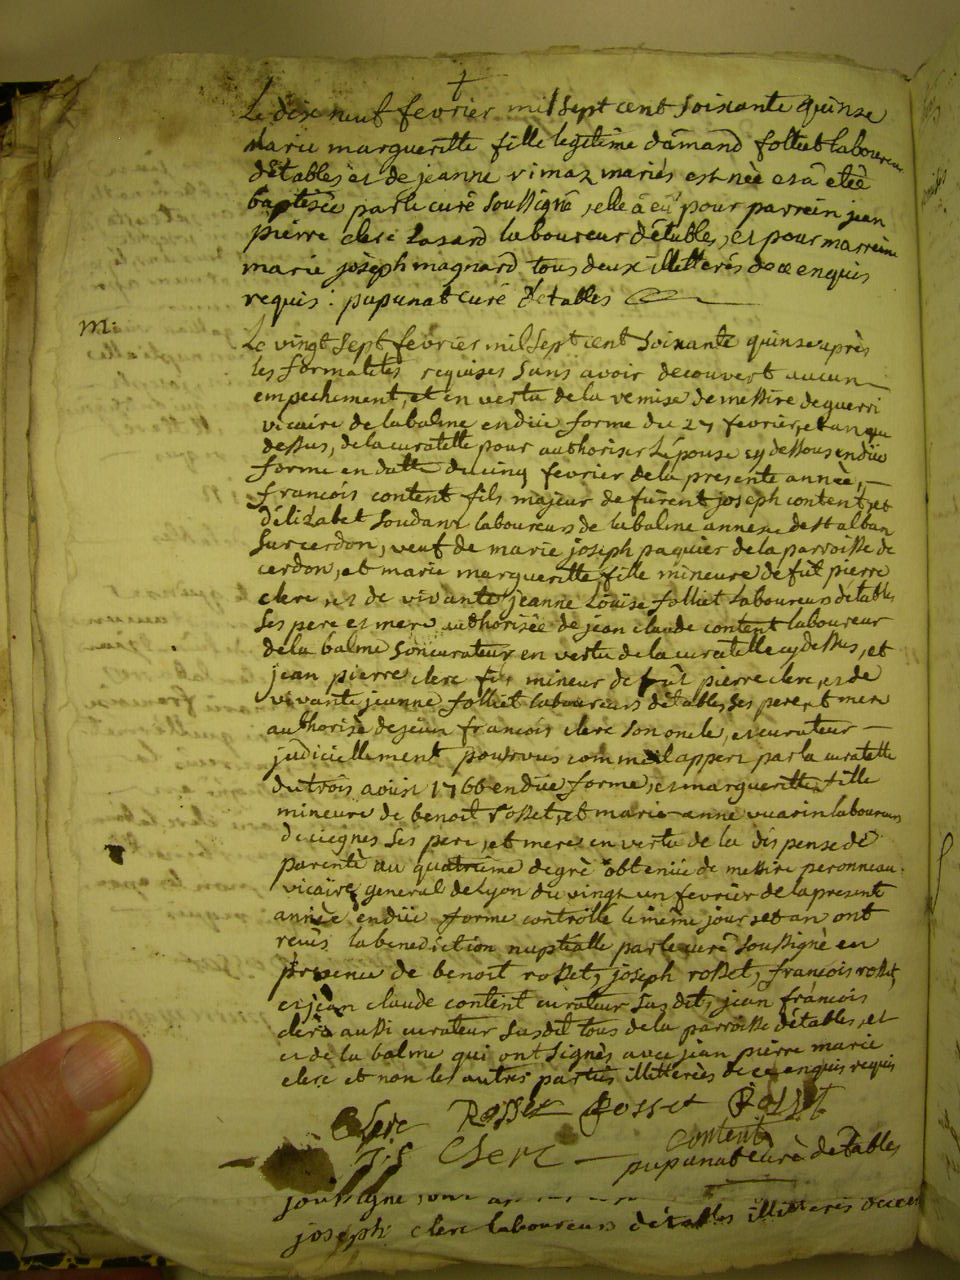 Le dix neuf fevrier mil sept cent soixante quinse
marie margueritte fille legitime d'amand folliet laboureur
détables et de jeanne vimaz mariés est née et a étée
baptisée par le curé soussigné, elle a eu pour parrein jean
pierre clerc Lasard laboureur détables, et pour marreine
marie joseph magnard tous deux illitterés de ce enquis
requis : pupunat curé détables
m:
Le vingt sept fevrier mil sept cent soixante quinse après
les formalités requises sans avoir decouvert aucun
empechement, et en vertu de la remise de messire deguerri
vicaire de labalme en düe forme du 27 fevrier, et an que
dessus, de la curatelle pour authoriser Lépouse cy dessous en düe
forme en datte du cinq fevrier de la presente année,
francois content fils majeur de fûrent joseph content, et
d'élizabet soudan laboureurs de labalme annexe de st alban
sur cerdon, veuf de marie joseph paquier de la parroisse de
cerdon, et marie margueritte fille mineure de fût pierre
clerc et de vivante jeanne Louise folliet Laboureurs détables
ses pere et mere authorisée de jean claude content laboureur
de la balme son curateur en vertu de la curatelle cy dessus, et
jean pierre clerc fils mineur de fût pierre clerc, et de
vivante jeanne folliet laboureurs détables, ses pere et mere
authorisé de jean francois clerc son oncle, et curateur
judiciellement pourvus comme il appert par la curatelle
du trois aoust 1766 en düe forme, et margueritte fille
mineure de benoit rosset, et marie anne vuarin laboureurs
de ceignes ses pere, et mere en vertu de la dispense de
parenté au quatrième degré obtenüe de messire peronneau
vicaire general de Lyon du vingt un fevrier de la present
année en düe forme controllé le même jour et an ont
recûs la benediction nuptialle par le curé soussigné en
presence de benoit rosset, joseph rosset, francois rosset,
et jean claude content curateur susdit, jean francois
clerc aussi curateur susdit tous de la parroisse détables, et
et de la balme qui ont signés avec jean pierre marie
clerc et non les autres parties illitterées de ce enquis requis
Clerc Rosset Rosset Rosset
content
Clerc
pupunat curé détables
joseph clerc laboureurs détables illitterés de ce